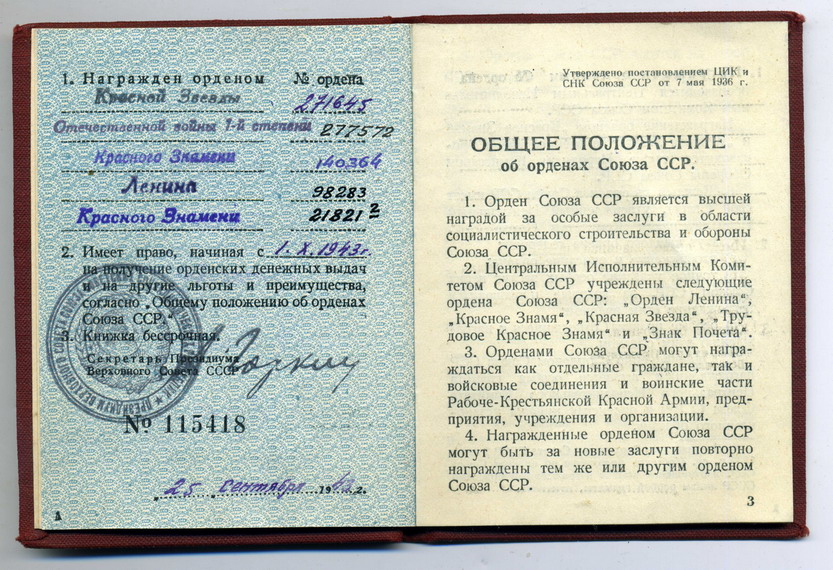 1. Награжден орденом № ордена
Красной Звезды 271645
Отечественной войны 1-й степени 277572
Красного Знамени 140364
Ленина 98283
Красного Знамени 21821 2
2. Имеет право, начиная с 1.X.1943г.
на получение орденских денежных выдач
и на другие льготы и преимущества,
согласно „Общему положению об орденах
Союза ССР."
3. Книжка бессрочная.
Секретарь Президиума
Верховного Совета СССР
№ 115418
25 сентября 194 г.
Утверждено постановлением ЦИК и
СНК Союза ССР от 7 мая 1936 г.
ОБЩЕЕ ПОЛОЖЕНИЕ
об орденах Союза ССР.
1. Орден Союза ССР является высшей
наградой за особые заслуги в области
социалистического строительства и обороны
Союза ССР.
2. Центральным Исполнительным Коми-
тетом Союза ССР учреждены следующие
ордена Союза ССР: „Орден Ленина",
„Красное Знамя", „Красная Звезда", „Тру-
довое Красное Знамя" и „Знак Почета".
3. Орденами Союза ССР могут награ-
ждаться как отдельные граждане, так и
войсковые соединения и воинские части
Рабоче-Крестьянской Красной Армии, пред-
приятия, учреждения и организации.
4. Награжденные орденом Союза ССР
могут быть за новые заслуги повторно
награждены тем же или другим орденом
Союза ССР.
3